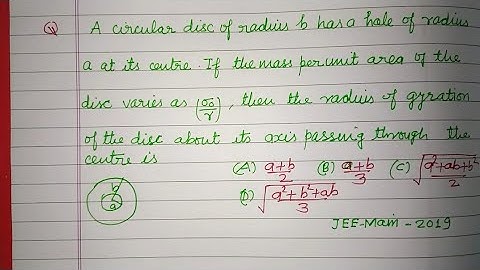 Q A circular disc of radius b has a hole of radius
a at its centre. If the mass per unit area of the
disc varies as (σ₀/r), then the radius of gyration
of the disc about its axis passing through the
centre is
(A) a+b/2 (B) a+b/3 (C) √a²+ab+b²/2
(D) √a²+b²+ab/3
b
a
JEE-Main - 2019